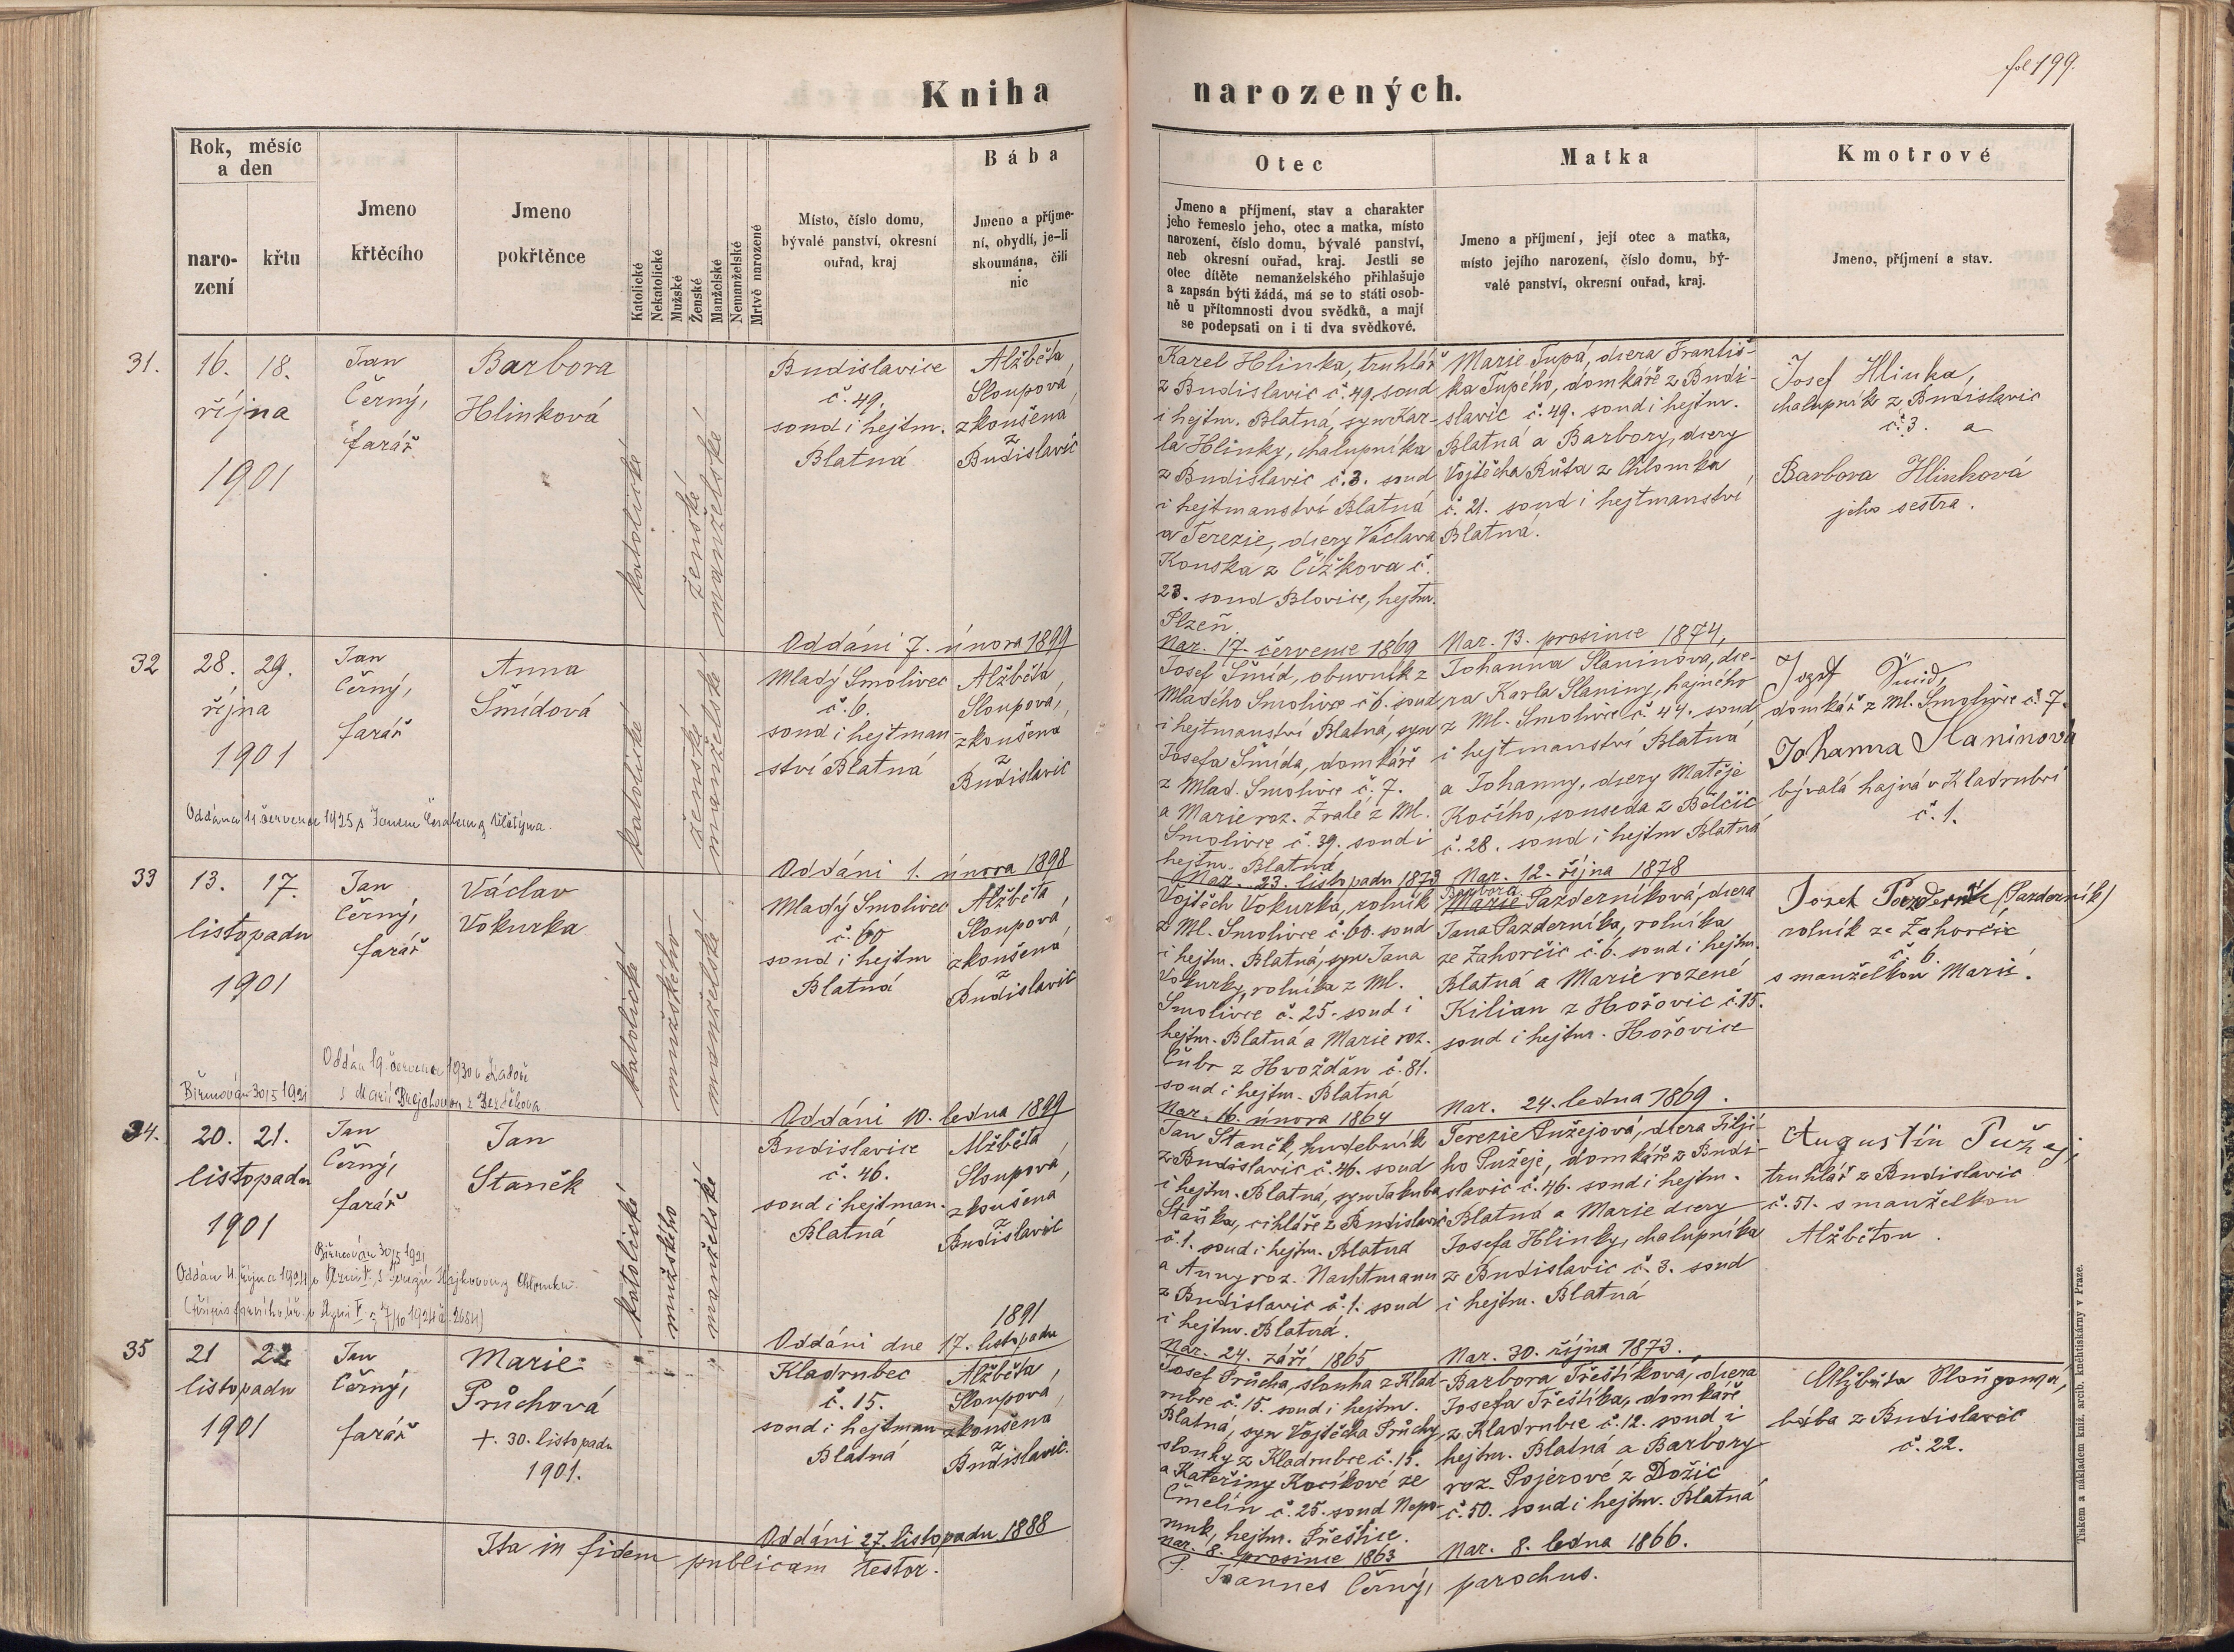 fol 199.
Kniha narozených.
Rok, měsíc
a den
naro-
zení
křtu
Jmeno
křtěcího
Jmeno
pokřtěnce
Katolické
Nekatolické
Mužské
Ženské
Manželské
Nemanželské
Mrtvě narozené
Místo, číslo domu,
bývalé panství, okresní
ouřad, kraj
Bába
Jmeno a příjme-
ní, obydlí, je-li
skoumána, čili
nic
Otec
Jmeno a příjmení, stav a charakter
jeho řemeslo jeho, otec a matka, místo
narození, číslo domu, bývalé panství,
neb okresní ouřad, kraj. Jestli se
otec dítěte nemanželského přihlašuje
a zapsán býti žádá, má se to státi osob-
ně u přítomnosti dvou svědků, a mají
se podepsati on i ti dva svědkové.
Matka
Jmeno a příjmení, její otec a matka,
místo jejího narození, číslo domu, bý-
valé panství, okresní ouřad, kraj.
Kmotrové
Jmeno, příjmení a stav.
31.
16. 18.
října
1901
Jan
Černý,
farář
Barbora
Hlinková
katolické
ženské
manželské
Budislavice
č. 49.
soud i hejtm.
Blatná
Oddáni 7. února 1899
Alžběta
Sloupová,
zkoušená
z
Budislavic
Karel Hlinka, truhlář
z Budislavic č. 49. soud
i hejtm. Blatná, syn Kar-
la Hlinky, chalupníka
z Budislavic č. 3. soud
i hejtmanství Blatná
a Terezie, dcery Václava
Kouska z Čížkova č.
23. soud Blovice, hejtm.
Plzeň
Nar. 17. července 1869
Marie Tupá, dcera Františ-
ka Tupého, domkáře z Budi-
slavic č. 49. soud i hejtm.
Blatná a Barbory, dcery
Vojtěcha Růta z Chlomka
č. 21. soud i hejtmanství
Blatná.
Nar. 13. prosince 1874,
Josef Hlinka,
chalupník z Budislavic
č. 3. a
Barbora Hlinková
jeho sestra.
32
28. 29.
října
1901
Jan
Černý,
farář
Anna
Šmídová
Oddána 11 července 1925 s Janem
katolické
ženské
manželské
Mladý Smolivec
č. 6.
soud i hejtman-
ství Blatná
Oddáni 1. února 1898
Alžběta
Sloupová,
zkoušená
z
Budislavic
Josef Šmíd, obuvník z
Mladého Smolivce č 6. soud
i hejtmanství Blatná, syn
Josefa Šmída, domkáře
z Mlad. Smolivce č. 7.
a Marie roz. Zralé z Ml.
Smolivce č. 39. soud i
hejtm. Blatná
Nar. 23. listopadu 1873
Johanna Slaninová, dce-
ra Karla Slaniny, hajného
z Ml. Smolivce č. 44. soud
i hejtmanství Blatná
a Johanny, dcery Matěje
Kočího, souseda z Bělčic
č. 28. soud i hejtm Blatná
Nar. 12. října 1878
Josef Šmíd,
domkář z Ml. Smolivce č. 7.
Johanna Slaninová
bývalá hajná v Kladrubci
č. 1.
33
13. 17.
listopadu
1901
Jan
Černý,
farář
Václav
Vokurka
Oddán 19. července 1930
s Marií
Biřmován 30/5 1921
katolické
mužského
manželské
Mladý Smolivec
č. 60
soud i hejtm
Blatná
Oddáni 10. ledna 1899
Alžběta
Sloupová,
zkoušená
z
Budislavic
Vojtěch Vokurka, rolník
z Ml. Smolivce č. 60. soud
i hejtm. Blatná, syn Jana
Vokurky, rolníka z Ml.
Smolivce č. 25. soud i
hejtm. Blatná a Marie roz.
Čubr z Hvožďan č. 81.
soud i hejtm. Blatná
Nar. 16. února 1864
Barbora
Marie Pazderníková, dcera
Jana Pazderníka, rolníka
ze Zahorčic č. 6. soud i hejtm.
Blatná a Marie rozené
Kilian z Hořovic č. 15.
soud i hejtm. Hořovice
Nar. 24. ledna 1869.
Josef Pazderník (Pazderník)
rolník ze Zahorčic
č. 6.
s manželkou Marií.
34.
20. 21.
listopadu
1901
Jan
Černý,
farář
Jan
Staněk
Biřmován 30/5 1921
Oddán 4. října 1924 v
katolické
mužského
manželské
Budislavice
č. 46.
soud i hejtman.
Blatná
1891
Oddáni dne 17. listopadu
Alžběta
Sloupová,
zkoušená
z
Budislavic
Jan Staněk, hudebník
z Budislavic č. 46. soud
i hejtm. Blatná, syn Jakuba
Staňka, cihláře z Budislavic
č. 1. soud i hejtm. Blatná
a Anny roz. Nachtmann
z Budislavic č. 1. soud
i hejtm. Blatná.
Nar. 24. září 1865
Terezie Pužejová, dcera Jiljí-
ho Pužeje, domkáře z Budi-
slavic č. 46. soud i hejtm.
Blatná a Marie dcery
Josefa Hlinky, chalupníka
z Budislavic č. 3. soud
i hejtm. Blatná
Nar. 30. října 1873.
Augustin Pužej,
truhlář z Budislavic
č. 51. s manželkou
Alžbětou.
35
21 22
listopadu
1901
Jan
Černý,
farář
Marie
Průchová
+. 30. listopadu
1901.
Kladrubec
č. 15.
soud i hejtman
Blatná
Oddáni 27. listopadu 1888
Alžběta
Sloupová,
zkoušená
z
Budislavic.
Josef Průcha, slouha z Klad-
rubce č. 15. soud i hejtm.
Blatná, syn Vojtěcha Průchy,
slouhy z Kladrubce č. 15.
a Kateřiny Kocíkové ze
Čmelín č. 25. soud Nepo-
muk, hejtm. Přeštice.
Nar. 8. prosince 1863
Barbora Třeštíková, dcera
Josefa Třeštíka, domkáře
z Kladrubce č. 12. soud i
hejtm. Blatná a Barbory
roz. Pojerové z Dožic
č. 50. soud i hejtm. Blatná
Nar. 8. ledna 1866.
Alžběta Sloupová,
bába z Budislavic
č. 22.
Ita in fidem publicam testor.
P. Joannes Černý, parochus.
Tiskem a nákladem kníž. arcib. kněhtiskárny v Praze.